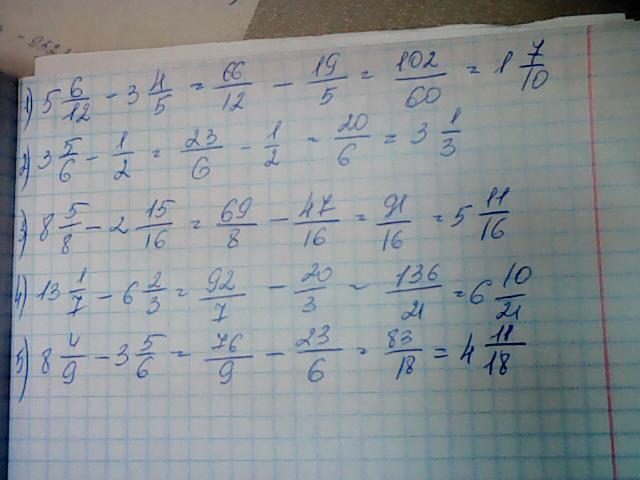 1) 5 6/12 - 3 4/5 = 66/12 - 19/5 = 102/60 = 1 7/10
2) 3 5/6 - 1/2 = 23/6 - 1/2 = 20/6 = 3 1/3
3) 8 5/8 - 2 15/16 = 69/8 - 47/16 = 91/16 = 5 11/16
4) 13 1/7 - 6 2/3 = 92/7 - 20/3 - 136/21 = 6 10/21
5) 8 4/9 - 3 5/6 = 76/9 - 23/6 = 83/18 = 4 11/18